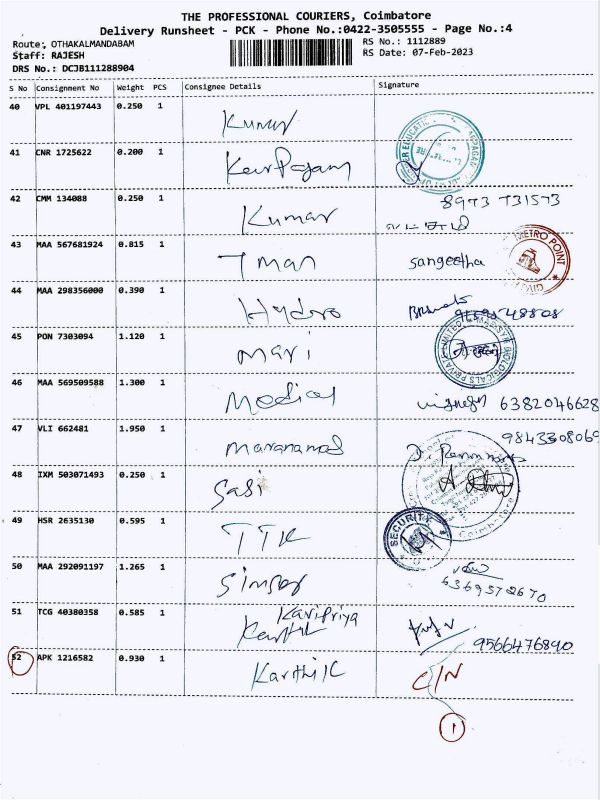 THE PROFESSIONAL COURIERS, Coimbatore
Delivery Runsheet - PCK - Phone No.:0422-3505555 - Page No.:4
Route: OTHAKALMANDABAM
RS No.: 1112889
Staff: RAJESH
RS Date: 07-Feb-2023
DRS No.: DCJB111288904
S No Consignment No Weight PCS Consignee Details Signature
40 VPL 401197443 0.250 1 Kumar
41 CNR 1725622 0.200 1 Karpagam
42 CMM 134088 0.250 1 Kumar
43 MAA 567681924 0.815 1 sangeetha METRO POINT
44 MAA 298356000 0.390 1 Hydro
45 PON 7303094 1.120 1 mari
46 MAA 569509588 1.300 1 Medical 6382046628
47 VLI 662481 1.950 1 9843308069
48 IXM 503071493 0.250 1 Sasi
49 HSR 2635130 0.595 1 TTK SECURITY
50 MAA 292091197 1.265 1
51 TCG 40380358 0.585 1 Karipriya
Karthik 9566476890
52 APK 1216582 0.930 1 Karthik C/N
1